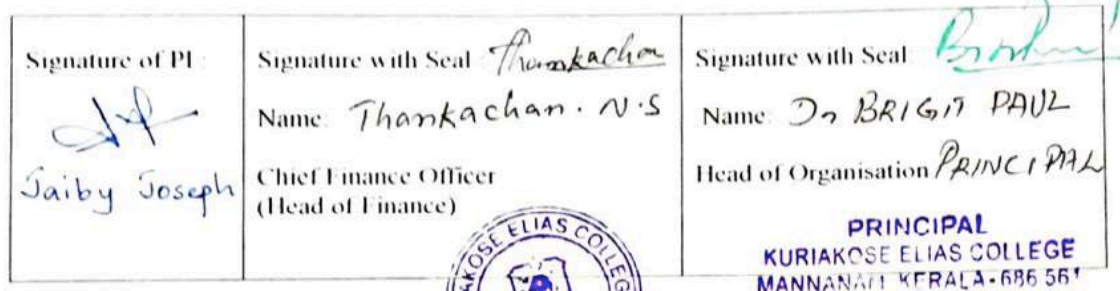 Signature of PI :
Jaiby Joseph
Signature with Seal Thankachan
Name: Thankachan. N.S
Chief Finance Officer
(Head of Finance)
KOSE ELIAS COLLEGE
Signature with Seal
Name: Dr BRIGIT PAUL
Head of Organisation PRINCIPAL
PRINCIPAL
KURIAKOSE ELIAS COLLEGE
MANNANAM KERALA-686 561